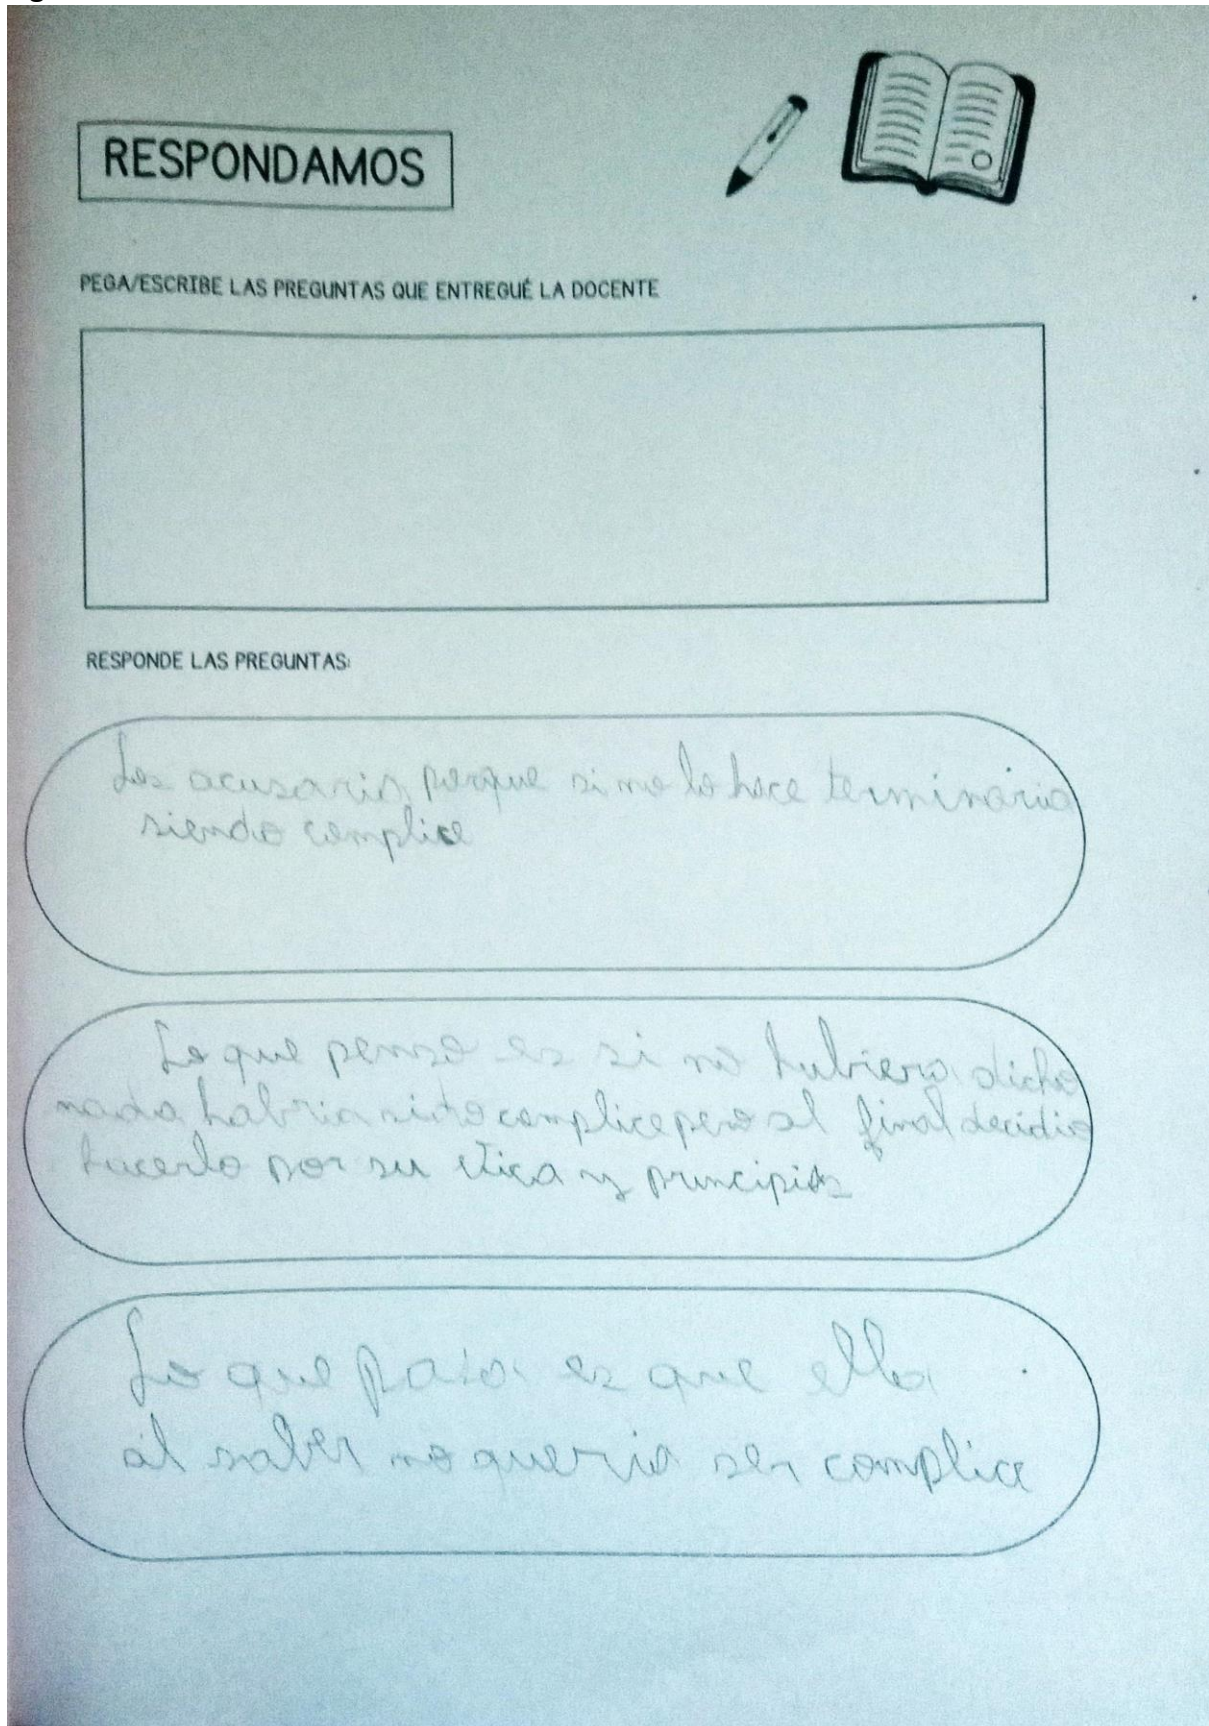 RESPONDAMOS
PEGA/ESCRIBE LAS PREGUNTAS QUE ENTREGUÉ LA DOCENTE
RESPONDE LAS PREGUNTAS:
Los acusaria, porque si no lo hace terminaria
siendo complice
Lo que penso es si no hubiera dicho
nada habria sido complice pero al final decidio
hacerlo por su etica y principios
Lo que pasa es que ella
al saber no queria ser complice